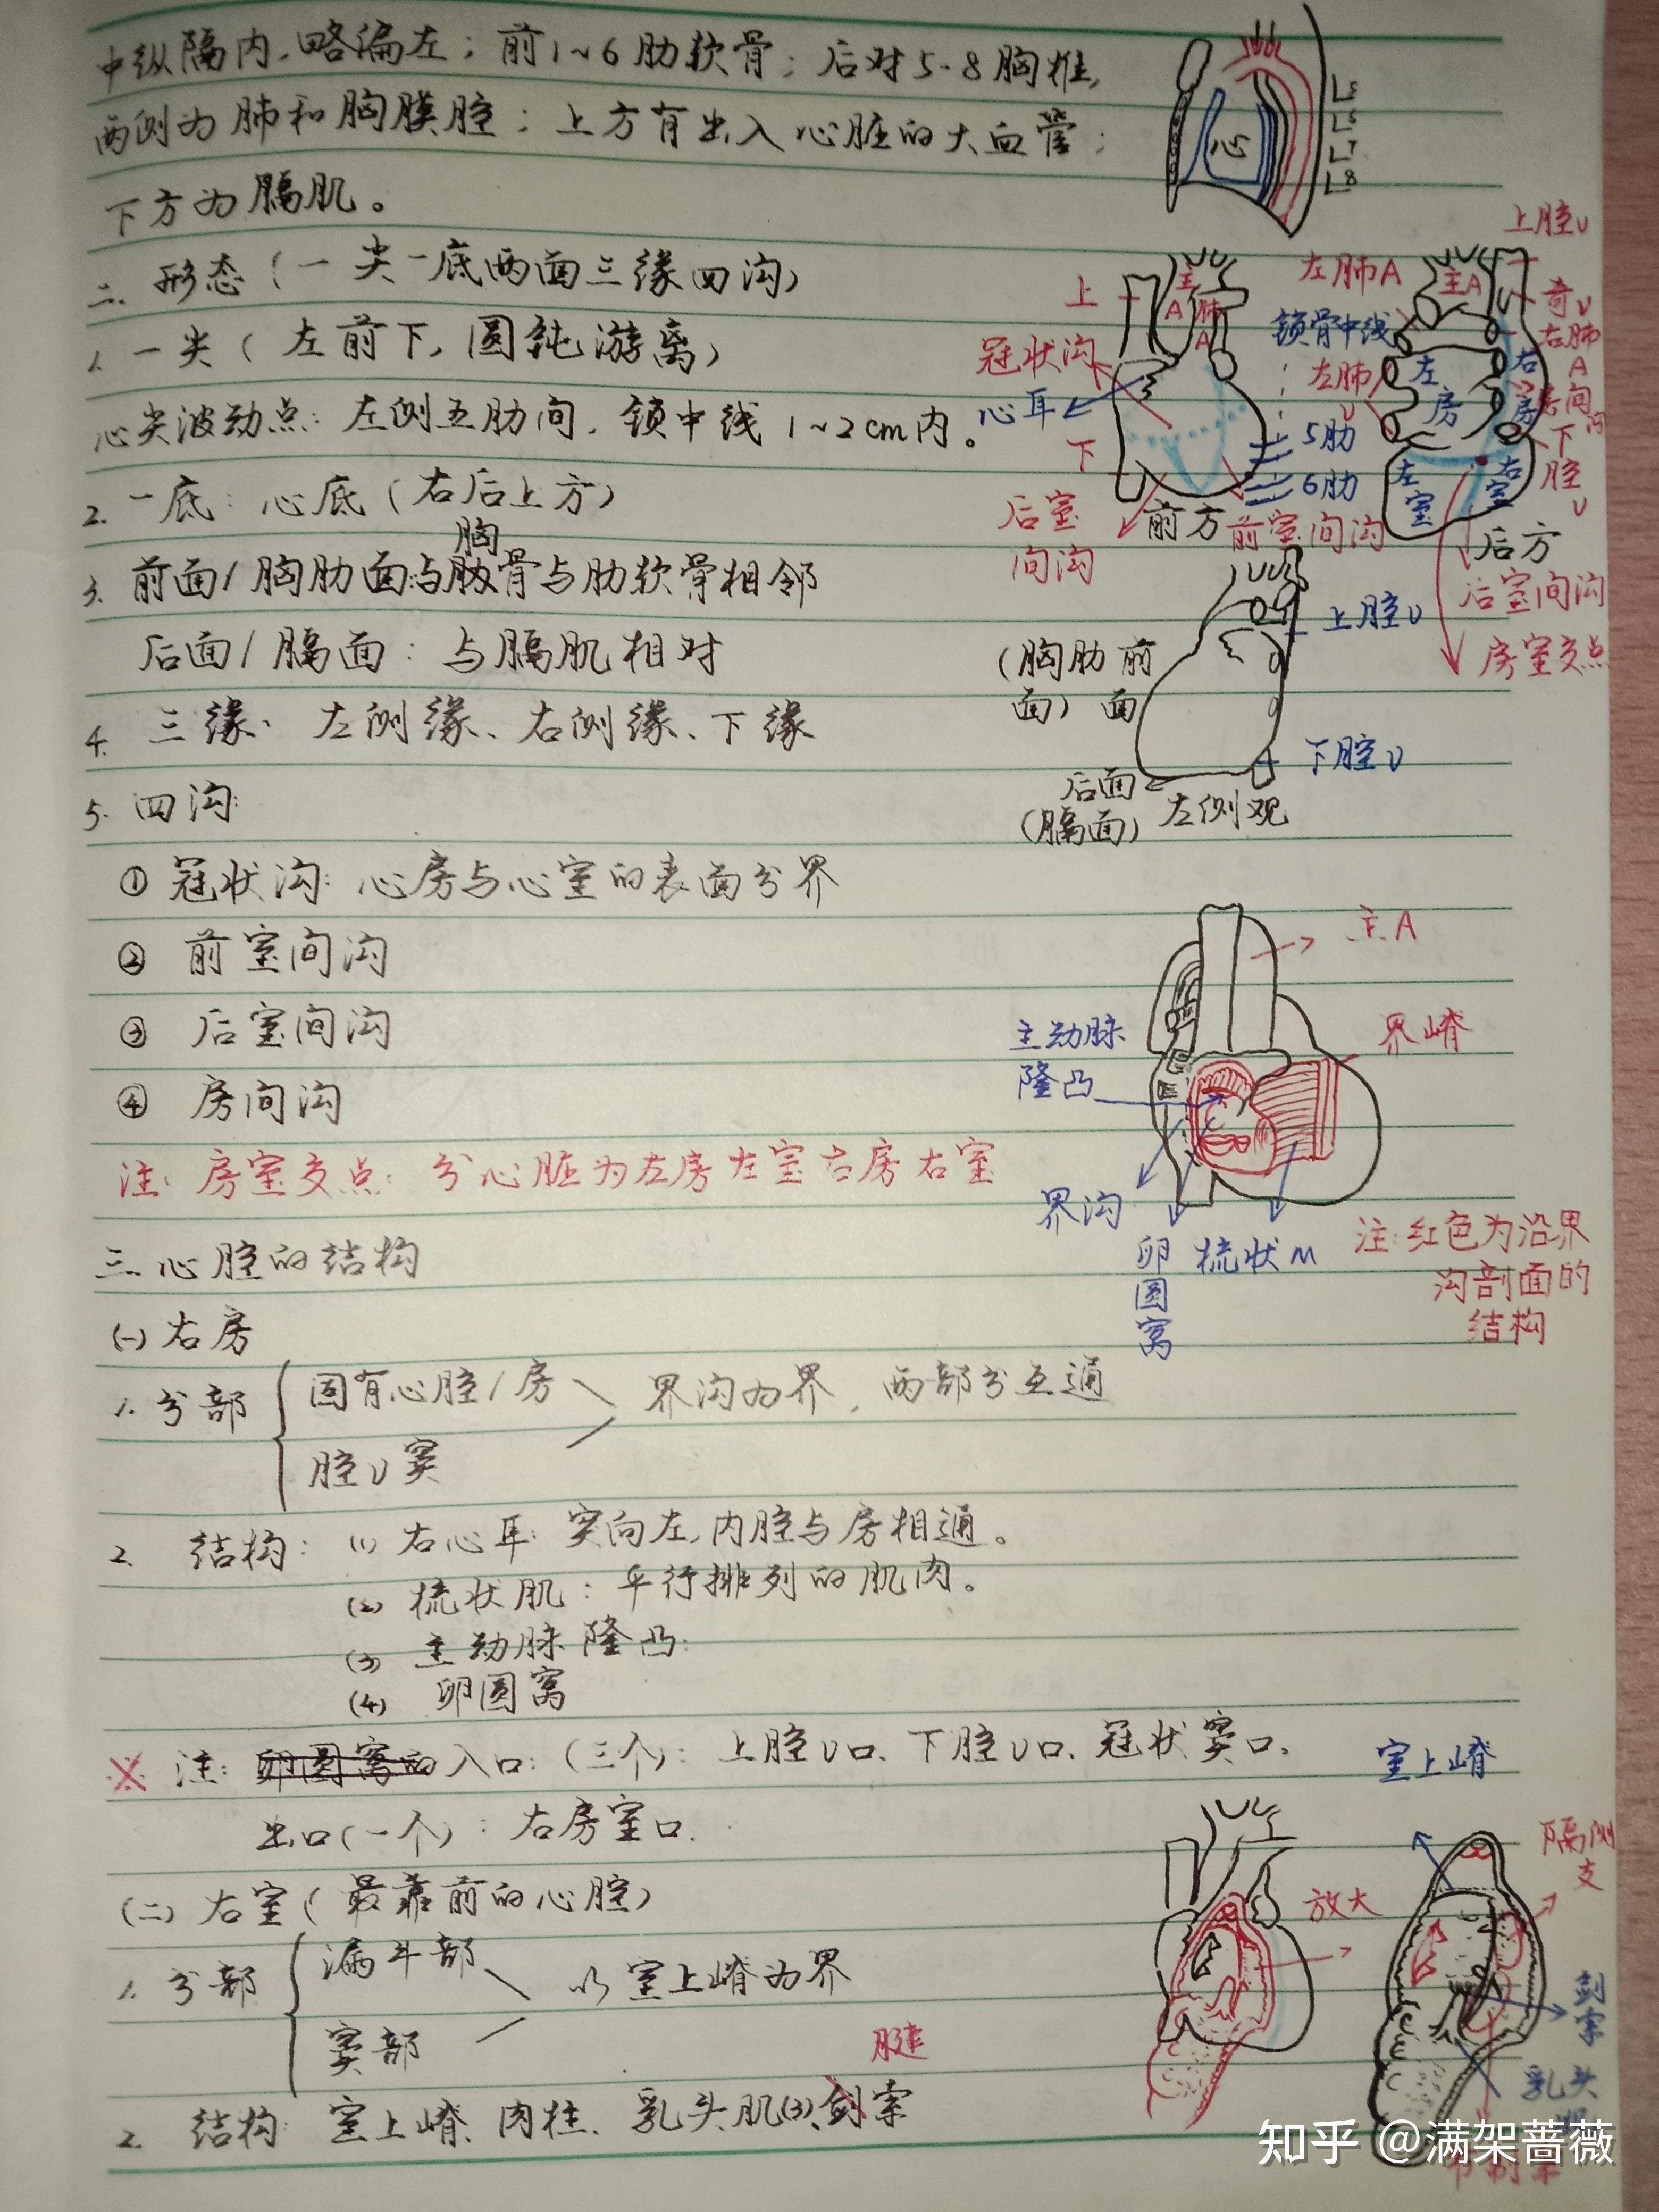 中纵隔内，略偏左；前1~6肋软骨；后对5-8胸椎，
两侧为肺和胸膜腔；上方有出入心脏的大血管；
下方为膈肌。
心
L5
L6
L7
L8
二、形态（一尖一底两面三缘四沟）
1. 一尖（左前下，圆钝游离）
心尖波动点：左侧五肋间，锁中线1~2cm内。
2. 一底：心底（右后上方）
胸
3. 前面/胸肋面：与肋骨与肋软骨相邻
后面/膈面：与膈肌相对
4. 三缘：左侧缘、右侧缘、下缘
5. 四沟：
①冠状沟：心房与心室的表面分界
② 前室间沟
③ 后室间沟
④ 房间沟
注：房室交点：分心脏为左房左室右房右室
上
主A
肺A
冠状沟
心耳
下
后室间沟
前方
前室间沟
锁骨中线
5肋
6肋
上腔V
左肺A
主A
奇V
右肺A
左肺V
左房
右房
房间沟
下腔V
左室
右室
后方
后室间沟
房室交点
上腔V
(胸肋面)
前面
下腔V
后面
(膈面)
左侧观
主A
主动脉隆凸
界嵴
界沟
卵圆窝
梳状M
注：红色为沿界
沟剖面的
结构
三.心腔的结构
(一)右房
1. 分部
固有心腔/房
腔V窦
界沟为界，两部分互通
2. 结构：(1)右心耳：突向左，内腔与房相通。
(2) 梳状肌：平行排列的肌肉。
(3) 主动脉隆凸：
(4) 卵圆窝
※ 注：卵圆窝的入口：(三个)：上腔V口、下腔V口、冠状窦口。
出口(一个)：右房室口.
(二)右室(最靠前的心腔)
1. 分部
漏斗部
窦部
以室上嵴为界
腱
2. 结构：室上嵴、肉柱、乳头肌(3)、剑索
室上嵴
放大
隔侧支
剑索
乳头
知乎 @满架蔷薇